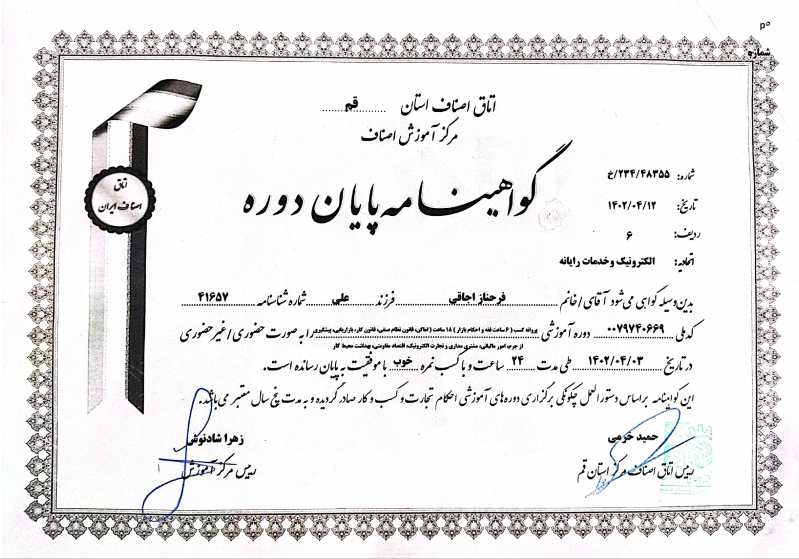 شماره
اتاق اصناف استان قم
مرکز آموزش اصناف
گواهینامه پایان دوره
اتاق
اصناف ایران
شماره: ۲۳۴/۴۸۳۵۵/خ
تاریخ: ۱۴۰۲/۰۴/۱۲
ردیف: ۶
اتحادیه: الکترونیک وخدمات رایانه
بدین وسیله گواهی می شود آقای/خانم فرحناز اجاقی فرزند علی شماره شناسنامه ۴۱۶۵۷
کد ملی ۰۰۷۹۷۴۰۶۶۹ دوره آموزشی پروانه کسب ( ۶ ساعت فقه و احکام بازار ) ۱۸ ساعت ( اماکن، قانون نظام صنفی، قانون کار، بازاریابی، پیشگیری را به صورت حضوری/غیر حضوری
از جرم، امور مالیاتی، مشتری مداری و تجارت الکترونیک، اقتصاد مقاومتی، بهداشت محیط کار
در تاریخ ۱۴۰۲/۰۴/۰۳ طی مدت ۲۴ ساعت و با کسب نمره خوب با موفقیت به پایان رسانده است.
این گواهینامه براساس دستورالعمل چگونگی برگزاری دوره های آموزشی احکام تجارت و کسب و کار صادر گردیده و به مدت پنج سال معتبر می باشد.
حمید خرمی
رییس اتاق اصناف مرکز استان قم
زهرا شادنوش
رییس مرکز آموزش